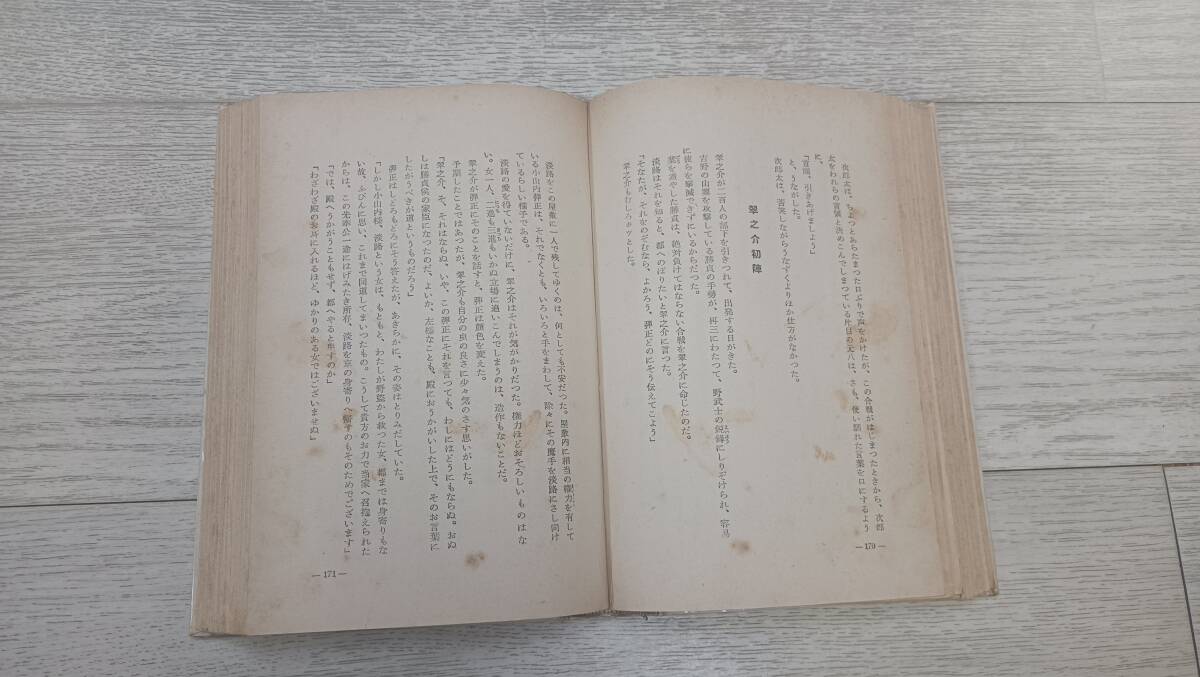 次郎太は、ちよつとあらたまつた口ぶりで声をかけたが、この合戦がはじまつたときから、次郎
太をわれらの首領と決めこんでしまつている片目の元八は、さも、使い馴れた言葉を口にするよう
に、
「首領、引きあげましよう」
と、うながした。
次郎太は、苦笑しながらうなずくよりほか仕方がなかつた。
翠之介初陣
翠之介が二百人の部下を引きつれて、出発する日がきた。
吉野の山塞を攻撃している勝貞の手勢が、再三にわたつて、野武士の鋭鋒にしりぞけられ、容易
に彼らを撃滅できずにいるからだつた。
業を煮やした勝貞は、絶対負けてはならない合戦を翠之介に命じたのだ。
淡路はそれを知ると、都へのぼりたいと翠之介に言つた。
「そなたが、それをのぞむなら、よかろう、弾正どのにそう伝えてこよう」
翠之介もむしろホッとした。
—170—
淡路をこの屋敷に一人で残してゆくのは、何としても不安だつた。屋敷内に相当の権力を有して
いる小山内弾正は、それでなくとも、いろいろと手をまわして、除々にその魔手を淡路にさし向け
ているらしい様子である。
淡路の愛を得ていないだけに、翠之介はそれが気がかりだつた。権力ほどおそろしいものはな
い。女一人、二進も三進もいかぬ立場に追いこんでしまうのは、造作もないことだ。
翠之介が弾正にそのことを話すと、弾正は顔色を変えた。
予期したことではあつたが、翠之介も自分の虫の良さに少々気のさす思いがした。
「翠之介、そ、それはならぬ。いや、この弾正にそれを言つても、わしにはどうにもならぬ。おぬ
しは勝貞侯の家臣になつたのだ、よいか、左様なことも、殿におうかがいした上で、そのお言葉に
したがうべきが道というものだろう」
弾正はしどろもどろにそう答えたが、あきらかに、その姿はとりみだしていた。
「しかし小山内様、淡路という女は、もともと、わたしが野盗から救つた女、都までは身寄りもな
い故、ふびんに思い、これまで同道してまいつたもの。こうして貴方のお力で当家へ召抱えられた
からは、この先奉公一途にはげみたき所存、淡路を京の身寄りへ帰すのもそのためでございます」
「では、殿へうかがうこともせず、都へやると申すのか」
「わざわざ殿のお耳に入れるほど、ゆかりのある女ではございませぬ」
—171—